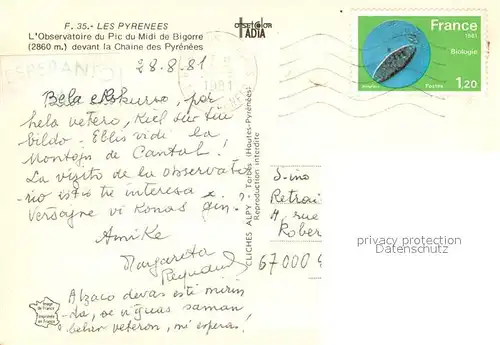 F. 35.- LES PYRENEES
L'Observatoire du Pic du Midi de Bigorre
(2860 m.) devant la Chaine des Pyrénées
OFFSET COLOR
IADIA
ESPERANTO
28.8.81
Bela ekskurso, por
bela vetero, kiel sur tiu
bildo. Eblis vidi la
Montojn de Cantal.
La vizito de la observato
rio estis tre interesa
vi konas ĝin.
Amike
Margareta
Alzaco devas esti mirin
da, se vi ĝuas saman
belan veteron, mi esperas!
CLICHES ALPY - Tarbes (Hautes-Pyrénées)
Reproduction interdite
France
1981
Biologie
Postes
1,20
S-ino
Retrai
4, rue
Rober
67000
privacy protection
Datenschutz
Image
de France
Imprimée
en France